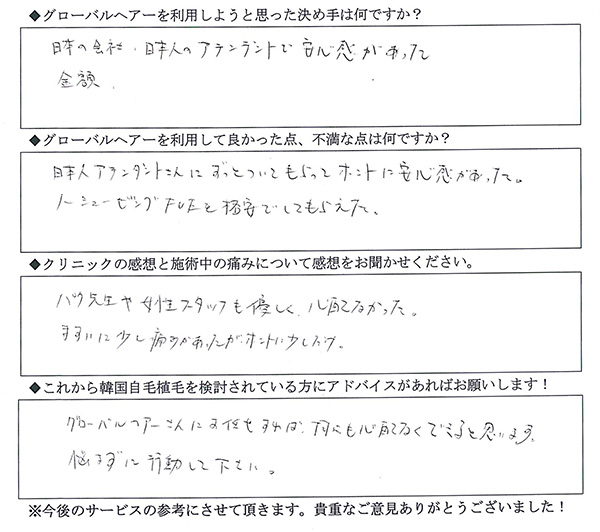 ◆グローバルヘアーを利用しようと思った決め手は何ですか？
日本の会社、日本人のアテンダントで安心感があった
金額、
◆グローバルヘアーを利用して良かった点、不満な点は何ですか？
日本人アテンダントさんにずっとついてもらってホントに安心感があった。
ノーシェービング だったと格安でしてもらえた、
◆クリニックの感想と施術中の痛みについて感想をお聞かせください。
パク先生や女性スタッフも優しく、心配なかった。
ますいに少し痛みがあったがホントに少しだけ。
◆これから韓国自毛植毛を検討されている方にアドバイスがあればお願いします！
グローバルヘアーさんにお任せすれば、何にも心配なくできると思います。
悩まずに行動して下さい。
※今後のサービスの参考にさせて頂きます。貴重なご意見ありがとうございました！